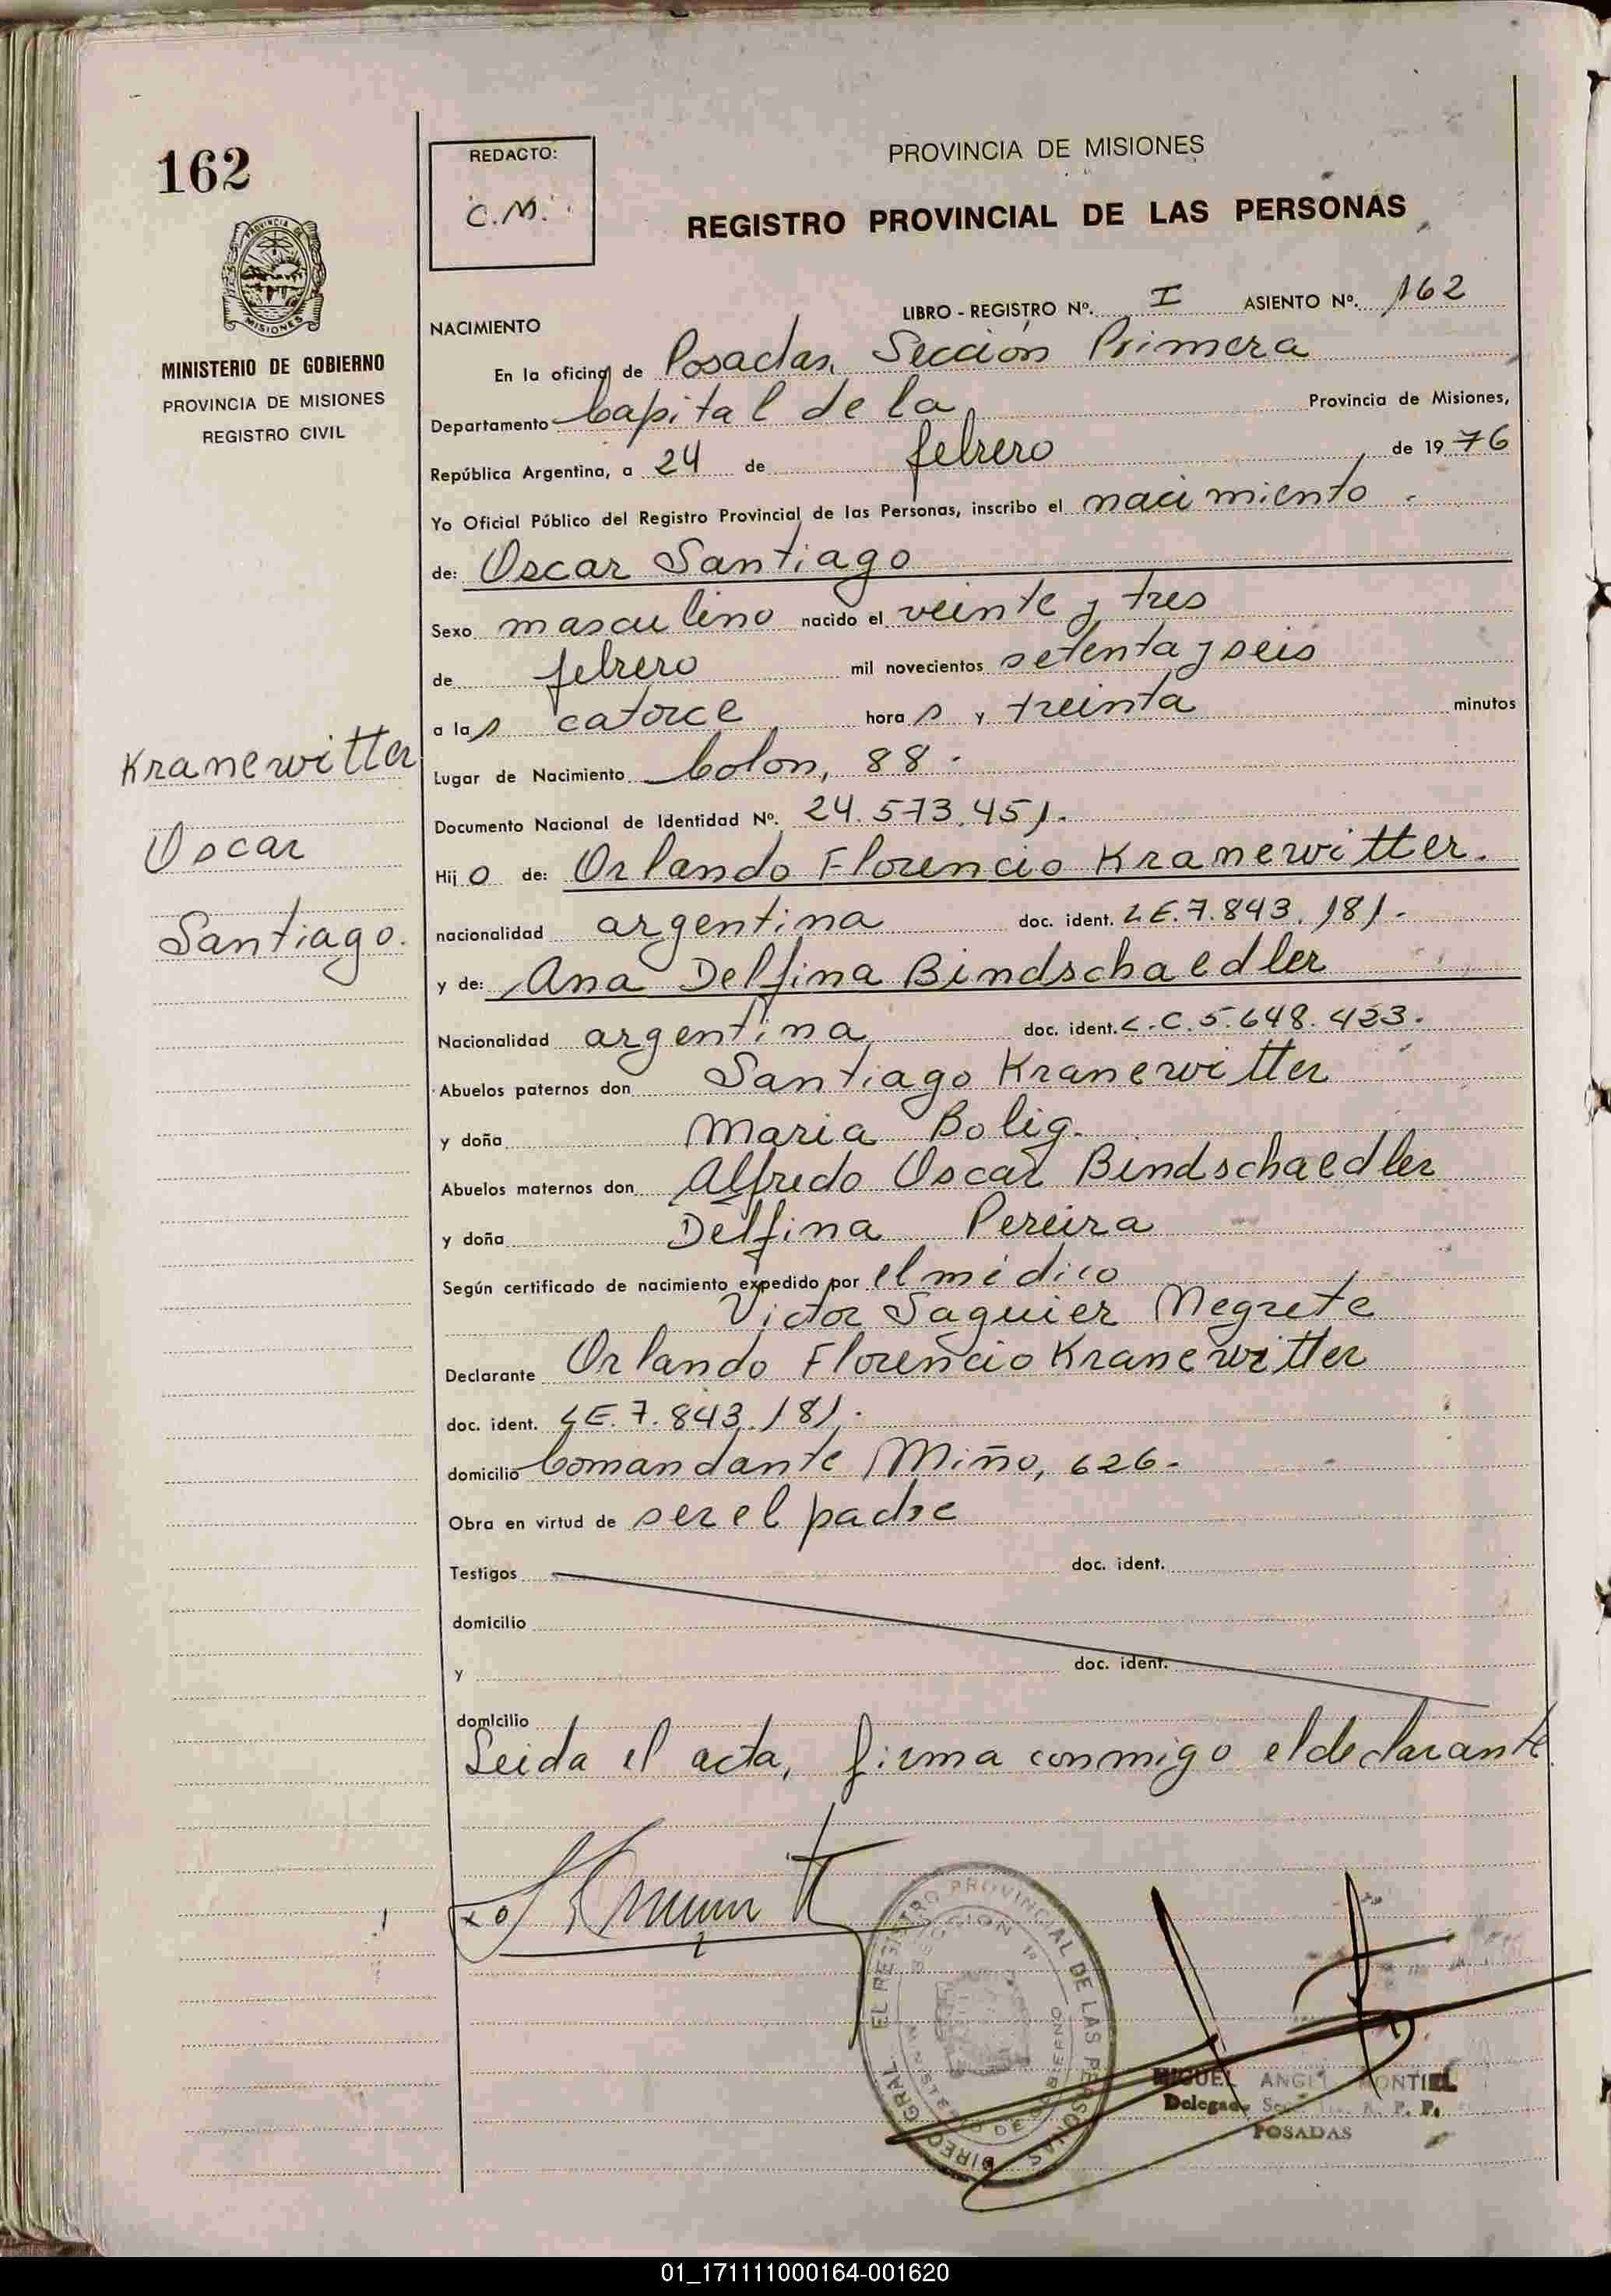 162
MINISTERIO DE GOBIERNO
PROVINCIA DE MISIONES
REGISTRO CIVIL
Kranewitter
Oscar
Santiago.
REDACTO:
C.M.
PROVINCIA DE MISIONES
REGISTRO PROVINCIAL DE LAS PERSONAS
LIBRO - REGISTRO Nº. I ASIENTO Nº. 162
NACIMIENTO
En la oficina de Posadas, Sección Primera
Departamento Capital de la Provincia de Misiones,
República Argentina, a 24 de febrero de 1976
Yo Oficial Público del Registro Provincial de las Personas, inscribo el nacimiento.
de: Oscar Santiago
Sexo masculino nacido el veinte y tres
de febrero mil novecientos setenta y seis
a las catorce horas y treinta minutos
Lugar de Nacimiento Colon, 88.
Documento Nacional de Identidad Nº. 24.573.451.
Hijo de: Orlando Florencio Kranewitter.
nacionalidad argentina doc. ident. L.E.7.843.181.
y de: Ana Delfina Bindschaedler
Nacionalidad argentina doc. ident. L.C.5.648.423.
Abuelos paternos don Santiago Kranewitter
y doña Maria Bolig.
Abuelos maternos don Alfredo Oscar Bindschaedler
y doña Delfina Pereira
Según certificado de nacimiento expedido por el médico
Victor Saguier Negrete
Declarante Orlando Florencio Kranewitter
doc. ident. L.E.7.843.181.
domicilio Comandante Miño, 626.
Obra en virtud de ser el padre
Testigos doc. ident.
domicilio
y doc. ident.
domicilio
Leida el acta, firma conmigo el declarante.
DIREC. GRAL. EL REGISTRO PROVINCIAL DE LAS PERSONAS
SECCION 1ª
MINISTERIO DE GOBIERNO
MIGUEL ANGEL MONTIEL
Delegado R. P. P.
POSADAS
01_171111000164-001620